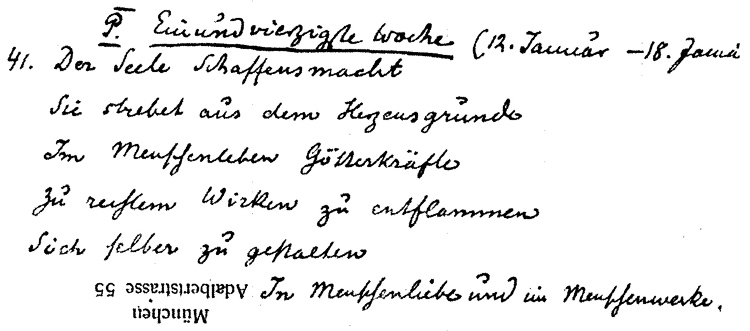 P. Einundvierzigste Woche (12. Januar – 18. Janua
41. Der Seele Schaffensmacht
Sie strebet aus dem Herzensgrunde
Im Menschenleben Götterkräfte
Zu rechtem Wirken zu entflammen
Sich selber zu gestalten
In Menschenliebe und im Menschenwerke.
München
Adalbertstrasse 55